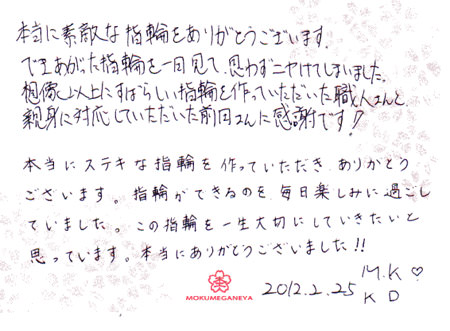 本当に素敵な指輪をありがとうございます。
でき上がった指輪を一目見て、思わずニヤけてしまいました。
想像以上にすばらしい指輪を作っていただいた職人さんと、
親身に対応していただいた前田さんに感謝です!
本当にステキな指輪を作っていただき ありがとう
ございます。指輪ができるのを 毎日楽しみに過ごし
ていました。この指輪を一生大切にしていきたいと
思っています。本当にありがとうございました!!
MOKUMEGANEYA
2012.2.25
M.K ♡
K D